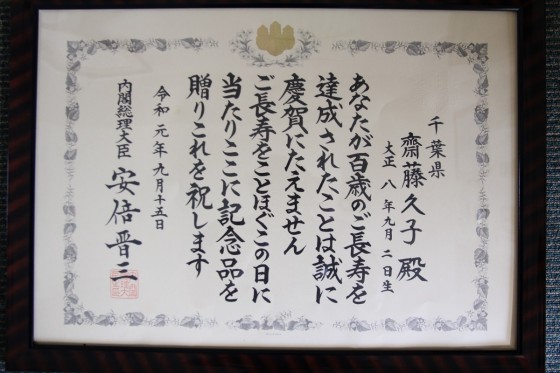 千葉県
齋藤久子殿
大正八年九月二日生
あなたが百歳のご長寿を
達成されたことは誠に
慶賀にたえません
ご長寿をことほぐこの日に
当たりここに記念品を
贈りこれを祝します
令和元年九月十五日
内閣総理大臣 安倍晋三